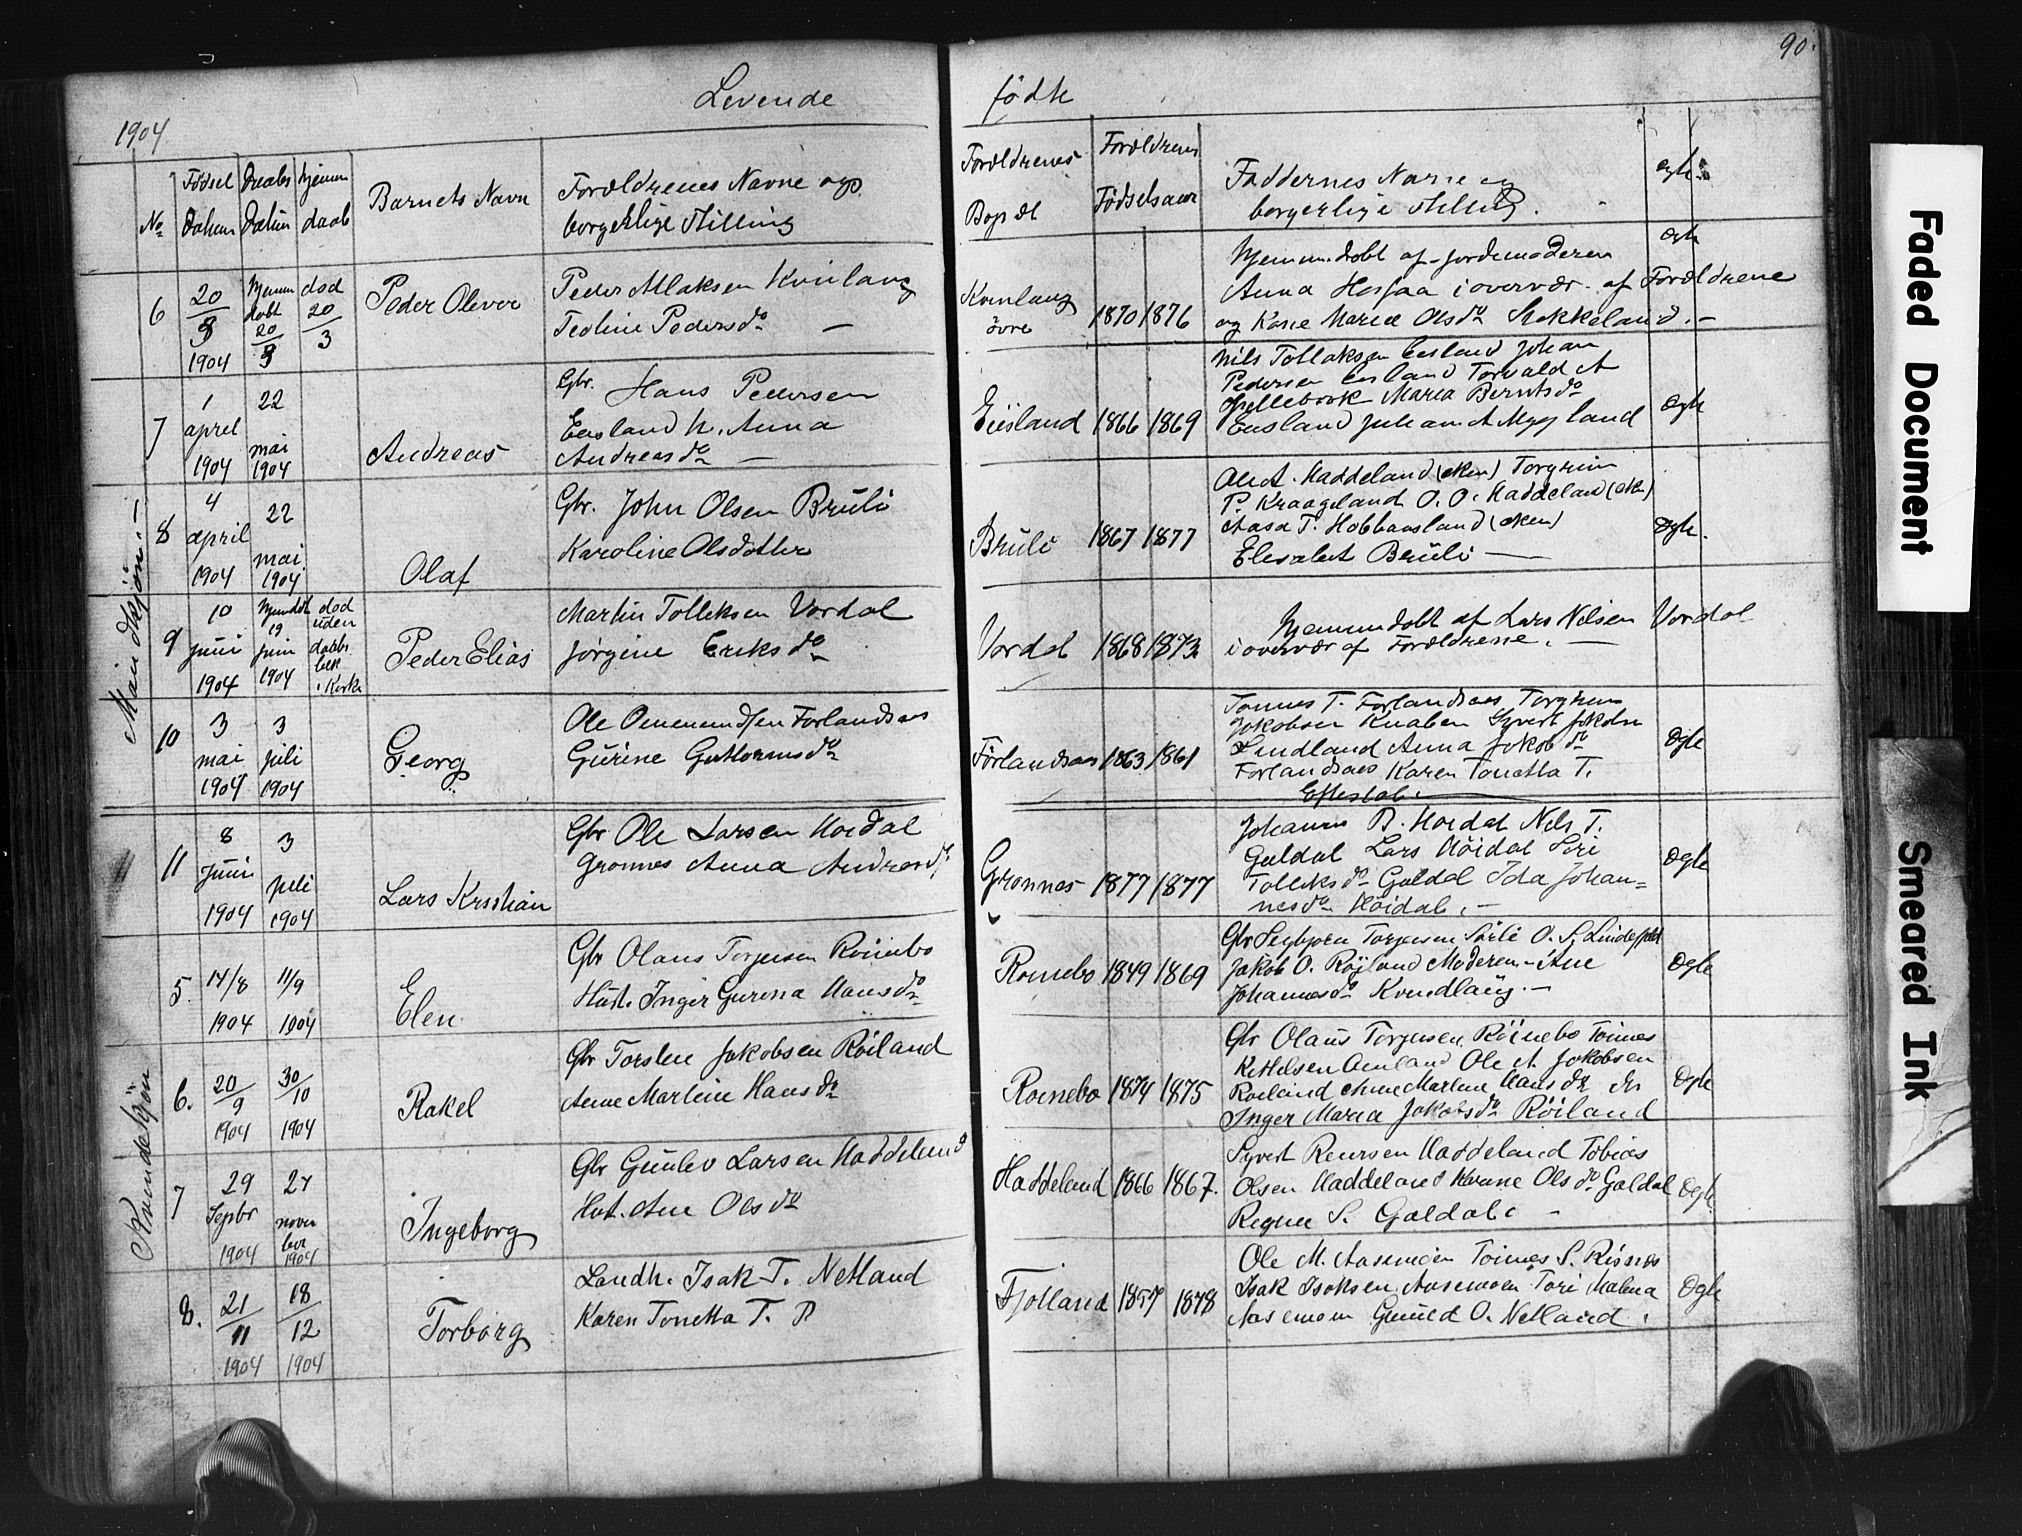 90.
Levende
fødte
1904
No
Fødsel Datum
Daabs Datum
hjemmedaab
Barnets Navn
Forældrenes Navne og borgerlige Stilling
Forældrenes Bopæl
Forældrenes Fødselsaar
Faddernes Navne og borgerlige stilling.
ægte
Mandkjøn.
6
20/3 1904
hjemmdøbt 20/3
død 20/3
Peder Olever
Peder Aslaksen Kvinlaug
Teoline Pedersdr —
Kvinlaug øvre
1870 1876
Hjemmdøbt af jordemoderen
Anna Hosfaa i overvær. af Forældrene
og Karie Maria Olsdr Stokkeland. —
Ægte
7
1 april 1904
22 mai 1904
Andreas
Gbr. Hans Pedersen
Eesland h. Anna
Andreasdr —
Eiesland
1866 1869
Nils Tollaksen Eesland Johan
Pedersen Eesland Torvald A
Maria Berntsdr
Eesland Johan A Myg land
Ægte
8
4 april 1904
22 mai 1904
Olaf
Gbr. John Olsen Brüli
Karoline Olsdotter
Brüli
1867 1877
Ole A. Haddeland (eken) Torgrim
P. Kraageland O. O. Haddeland (eken)
Aasa T. Hobbansland (eken)
Elesabet Brüli —
Ægte.
9
10 juni 1904
hjemdøbt 19 juni 1904
død uden dåbs bek i Kirke
Peder Elias
Martin Tolleksen Vordal
Jørgine Eriksdr
Vordal
1868 1873
Hjemmdøbt af Lars Nilsen Vordal
i overvær af Forældrene. —
10
3 mai 1904
3 juli 1904
Georg
Ole Forlandsaas
Gurine Guttormsdr
Førlandsaas
1863 1861
Tønnes T. Forlandsaas Torgrim
Jakobsen Knaben Syvert Jakobsen
Lindland Anna Jakobdr
Forlandsaas Karen Tonetta T.
Eftestøl.
Ægte
11
8 Juni 1904
3 juli 1904
Lars Kristian
Gbr Ole Larsen Høidal
Grønnes Anna Andreasdr
Grønnes
1877 1877
Johannes B. Høidal Nels T.
Galdal Lars Høidal Siri
Tolleksdr Galdal Ida Johan=
nesdr Høidal. —
Ægte
Kvindekjön
5.
14/8 1904
11/9 1904
Elen
Gbr Olaus Torjusen Röinebo
Hust. Inger Gurina Hansdr
Roinebo
1849 1869
Gbr Sigbjørn Torjusen Sörli O. S. Lindefjeld
Jakob O. Røjland Moderen — Ane
Johannesdr Kvindlaug. —
Ægte
6.
20/9 1904
30/10 1904
Rakel
Gbr Torsten Jakobsen Røiland
Anne Martine Hansdr
Roinebo
1874 1875
Gbr Olaus Torjusen Röinebo Tönnes
Kittelsen Omland Ole A Jakobsen
Roiland Anne Martine Hansdr
Inger Maria Jakobsdr Röiland
Ægte
7
29 Septbr 1904
27 november 1904
Ingeborg
Gbr Gunlev Larsen Haddeland
Hust. Ane Olsdr
Haddeland
1866 1867.
Syvert Reiersen Haddeland Tobias
Olsen Haddeland Karine Olsdr Galdal
Regine S. Galdal. —
Ægte
8.
21/11 1904
18/12 1904
Torborg
Landh. Isak T. Netland
Karen Tonetta T. P
Fjotland
1857 1878
Ole M. Aasemoen Tönnes S. Risnes
Isak Isaksen Aasemoen Tori Malena
Aasemoen Gunild O. Netland.
Ægte
Faded Document
Smeared Ink